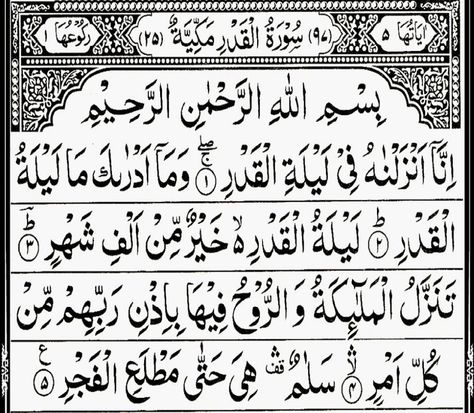 اٰیَاتُهَا ۵ (۹۷) سُوْرَةُ الْقَدْرِ مَكِّیَّةٌ (۲۵) رُكُوْعُهَا ۱
بِسْمِ اللهِ الرَّحْمٰنِ الرَّحِیْمِ
اِنَّاۤ اَنْزَلْنٰهُ فِیْ لَیْلَةِ الْقَدْرِ ۚۖ ﴿۱﴾ وَمَاۤ اَدْرٰىكَ مَا لَیْلَةُ
الْقَدْرِ ؕ ﴿۲﴾ لَیْلَةُ الْقَدْرِ ۙ۬ خَیْرٌ مِّنْ اَلْفِ شَهْرٍ ؕ ﴿۳﴾
تَنَزَّلُ الْمَلٰٓئِكَةُ وَالرُّوْحُ فِیْهَا بِاِذْنِ رَبِّهِمْ مِّنْ
كُلِّ اَمْرٍ ۙ ﴿۴﴾ سَلٰمٌ ۛ قف هِیَ حَتّٰی مَطْلَعِ الْفَجْرِ ﴿۵﴾ ع